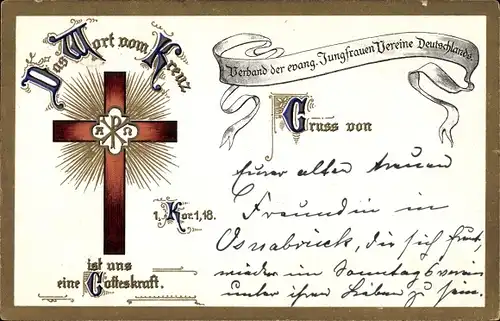 Das Wort vom Kreuz
Α Ω
1. Kor. 1, 18.
ist uns
eine Gotteskraft.
Verband der evang. Jungfrauen Vereine Deutschlands.
Gruss von
Eurer alten treuen
Freundin in
Osnabrück, die sich freut,
wieder im Sonntagsverein
unter ihren Lieben zu sein.